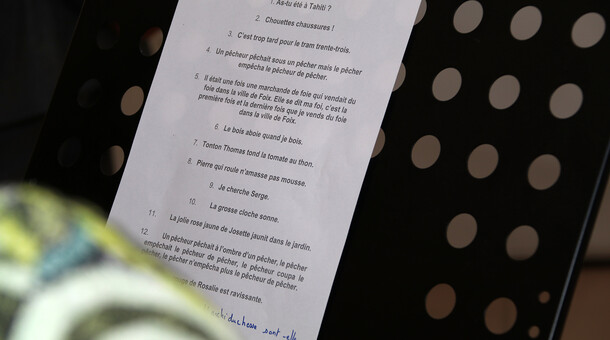 1. As-tu été à Tahiti ?
2. Chouettes chaussures !
3. C'est trop tard pour le tram trente-trois.
4. Un pêcheur pêchait sous un pêcher mais le pêcher
empêcha le pêcheur de pêcher.
5. Il était une fois une marchande de foie qui vendait du
foie dans la ville de Foix. Elle se dit ma foi, c'est la
première fois et la dernière fois que je vends du foie
dans la ville de Foix.
6. Le bois aboie quand je bois.
7. Tonton Thomas tond la tomate au thon.
8. Pierre qui roule n'amasse pas mousse.
9. Je cherche Serge.
10. La grosse cloche sonne.
11. La jolie rose jaune de Josette jaunit dans le jardin.
12. Un pêcheur pêchait à l'ombre d'un pêcher, le pêcher
empêchait le pêcheur de pêcher, le pêcheur coupa le
pêcher, le pêcher n'empêcha plus le pêcheur de pêcher.
de Rosalie est ravissante.
sont-elle